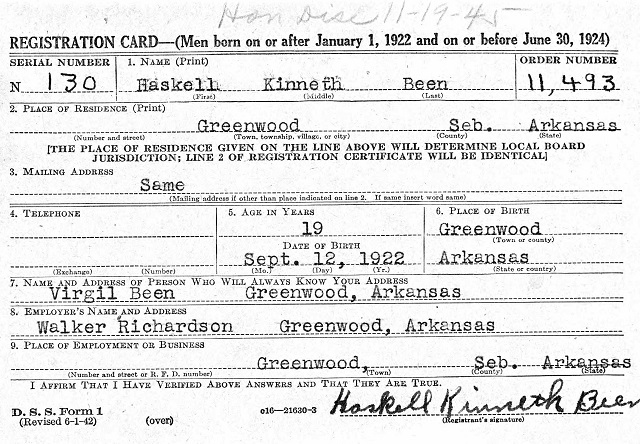 Hon Disc 11-19-45
REGISTRATION CARD—(Men born on or after January 1, 1922 and on or before June 30, 1924)
SERIAL NUMBER 1. NAME (Print) ORDER NUMBER
N 130 Haskell Kinneth Been 11,493
(First) (Middle) (Last)
2. PLACE OF RESIDENCE (Print)
Greenwood Seb. Arkansas
(Number and street) (Town, township, village, or city) (County) (State)
[THE PLACE OF RESIDENCE GIVEN ON THE LINE ABOVE WILL DETERMINE LOCAL BOARD
JURISDICTION; LINE 2 OF REGISTRATION CERTIFICATE WILL BE IDENTICAL]
3. MAILING ADDRESS
Same
(Mailing address if other than place indicated on line 2. If same insert word same)
4. TELEPHONE 5. AGE IN YEARS 6. PLACE OF BIRTH
19 Greenwood
DATE OF BIRTH (Town or county)
Sept. 12, 1922 Arkansas
(Exchange) (Number) (Mo.) (Day) (Yr.) (State or country)
7. NAME AND ADDRESS OF PERSON WHO WILL ALWAYS KNOW YOUR ADDRESS
Virgil Been Greenwood, Arkansas
8. EMPLOYER'S NAME AND ADDRESS
Walker Richardson Greenwood, Arkansas
9. PLACE OF EMPLOYMENT OR BUSINESS
Greenwood, Seb. Arkansas
(Number and street or R. F. D. number) (Town) (County) (State)
I AFFIRM THAT I HAVE VERIFIED ABOVE ANSWERS AND THAT THEY ARE TRUE.
D. S. S. Form 1 c16—21630-3 Haskell Kinneth Been
(Revised 6-1-42) (over) (Registrant's signature)